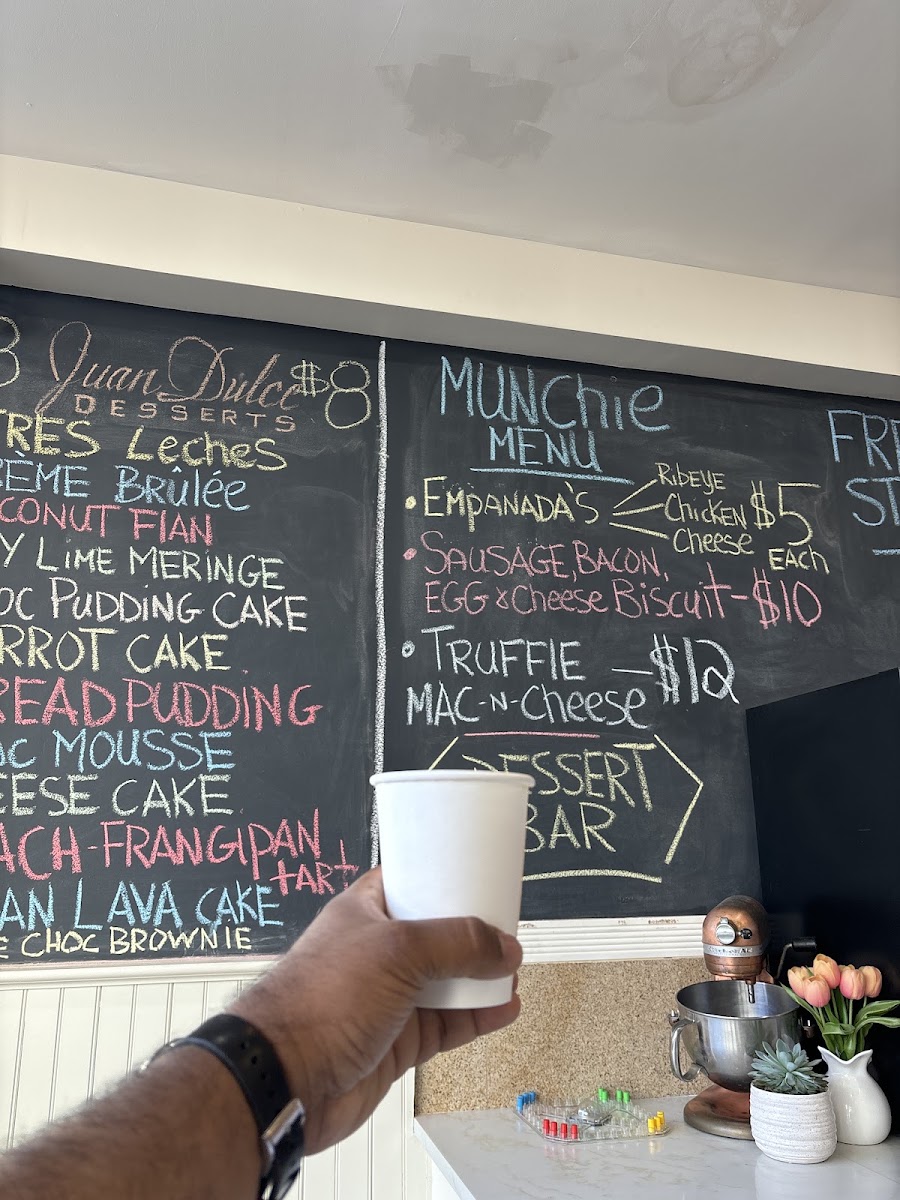 Juan Dulce $8
DESSERTS
TRES Leches
ÈME BRûLÉE
CONUT FlAN
Y LIME MERINGE
OC PUDDING CAKE
RROT CAKE
READ PUDDING
OC MOUSSE
EESE CAKE
ACH-FRANGIPAN
tART
AN LAVA CAKE
E CHOC BROWNIE
MUNChiE
MENU
• EMPANADA'S RIBEYE
CHICKEN
Cheese
$5
EACH
• SAUSAGE, BACON,
EGG & Cheese BiscuiT - $10
• TRUFFlE
MAC-N-Cheese — $12
DESSERT
BAR
FRE
ST